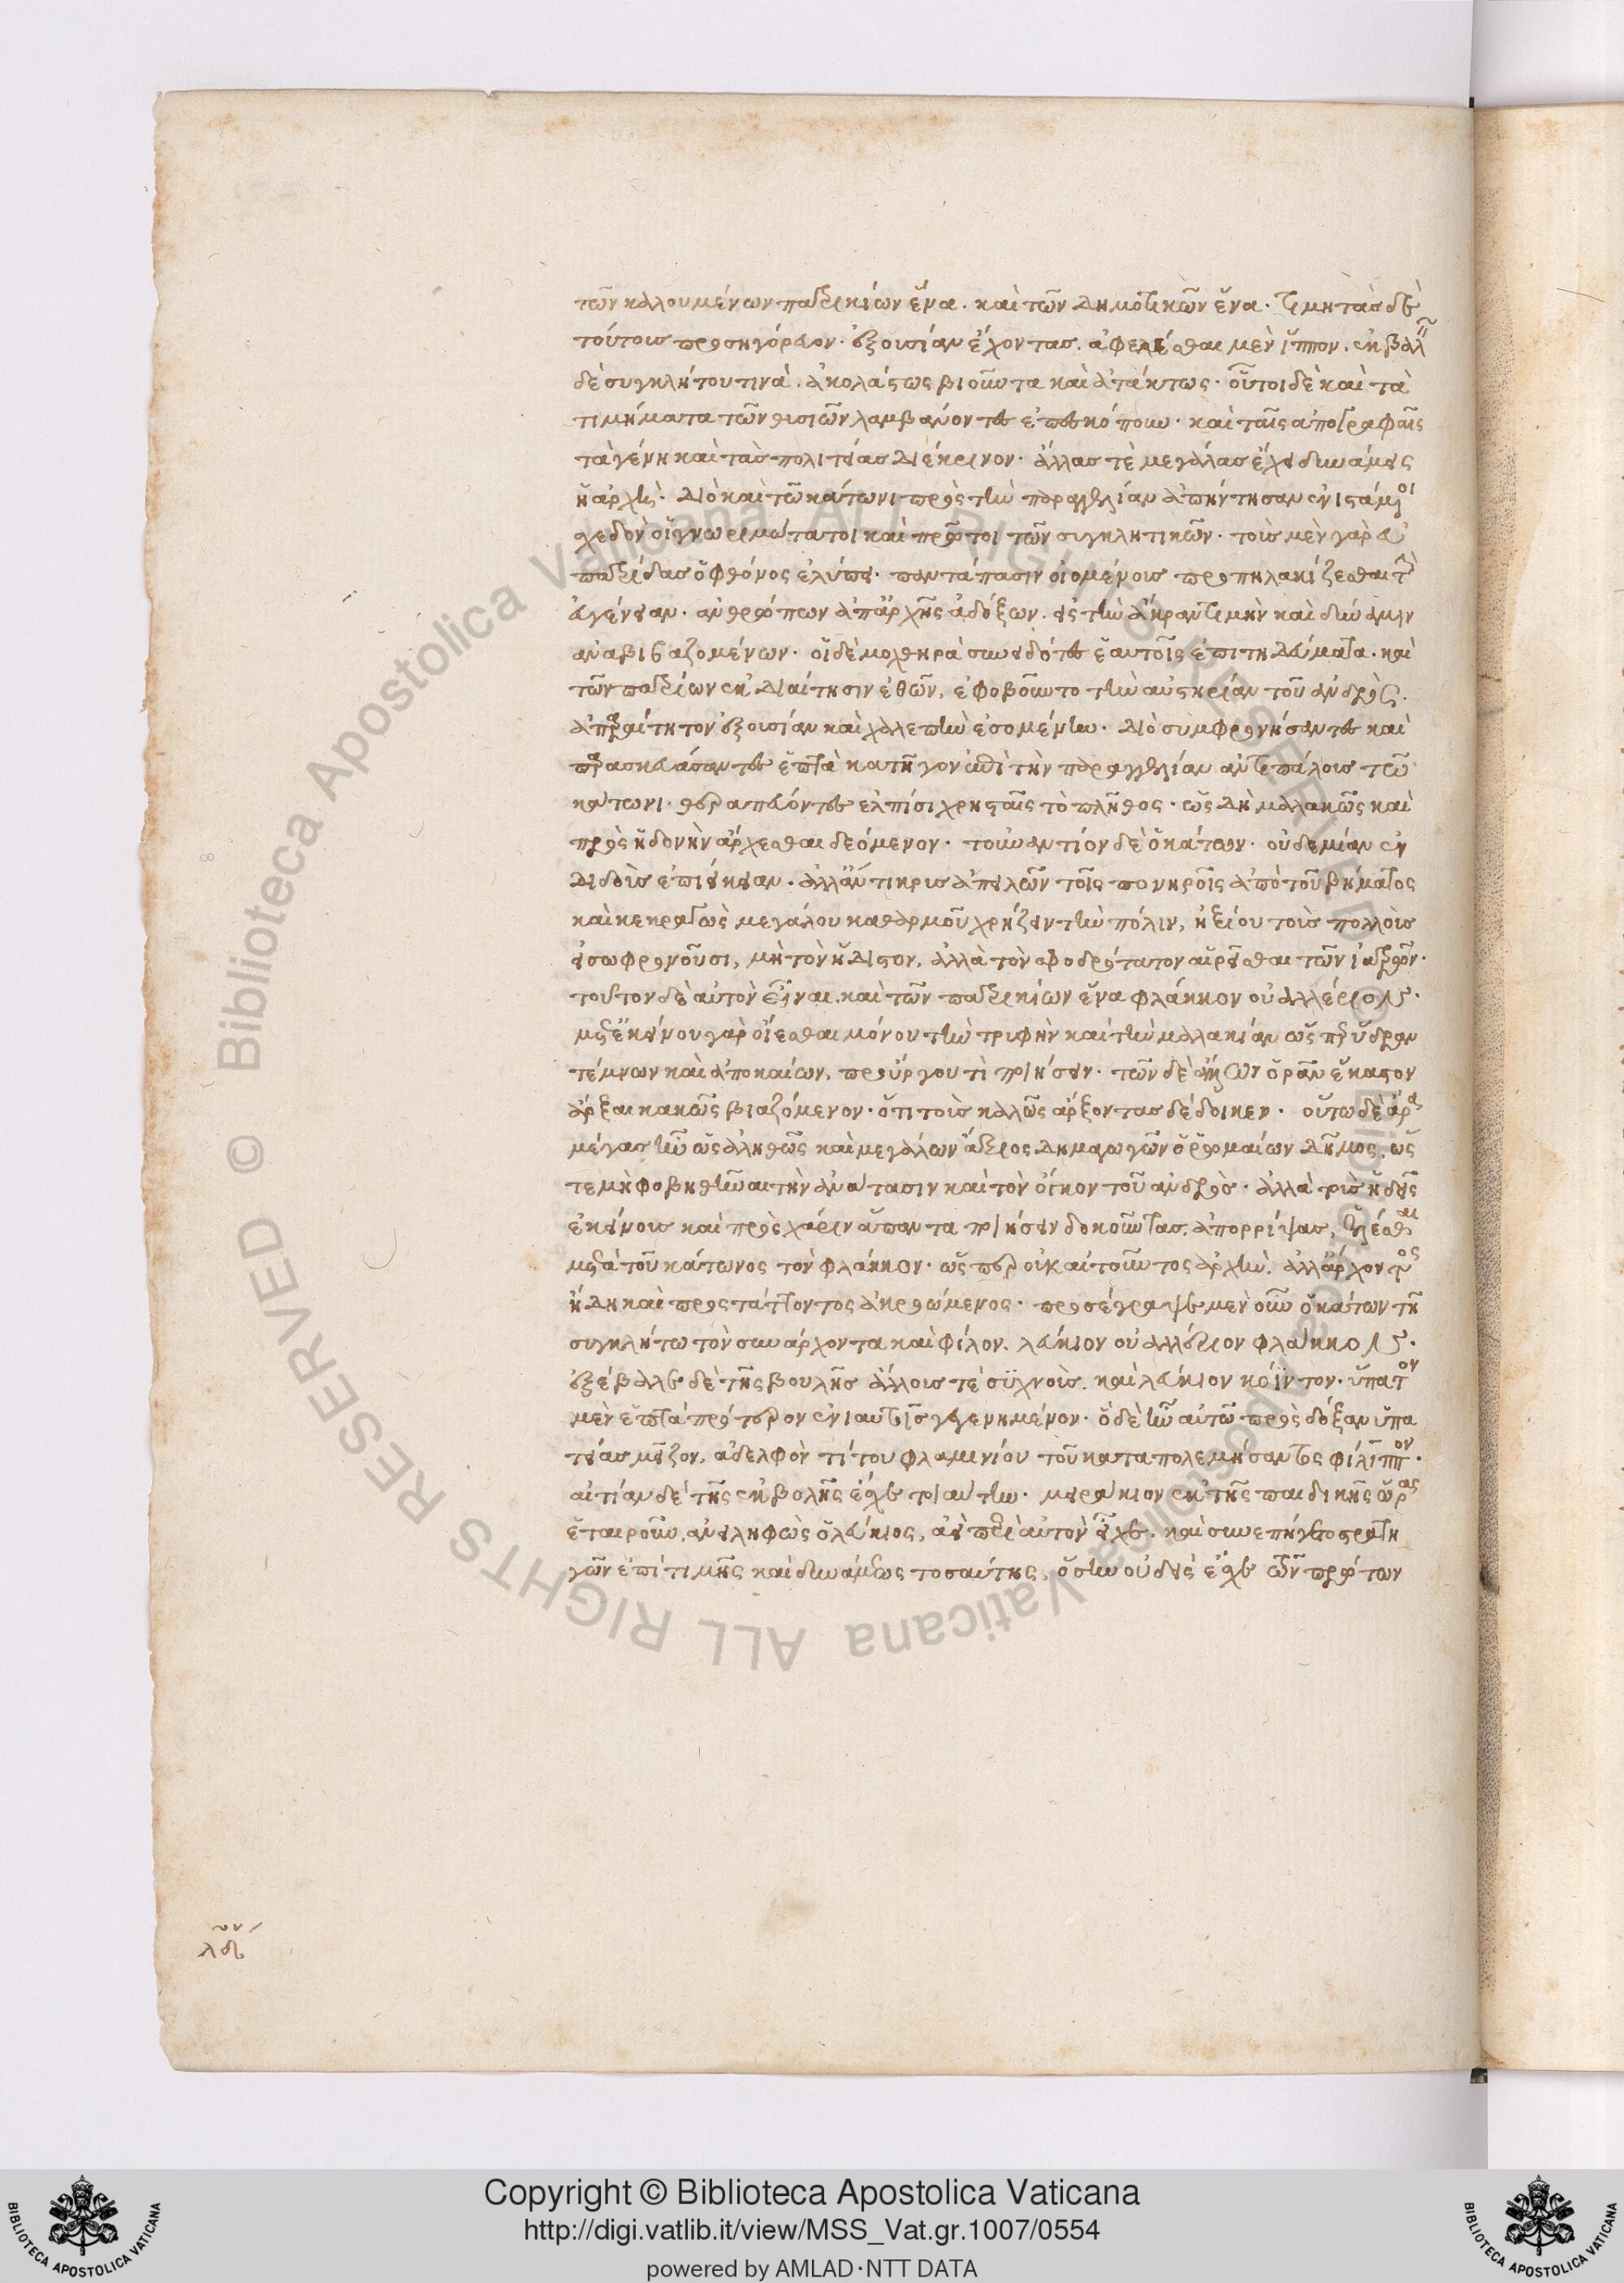 τῶν καλουμένων πατρικίων ἕνα. καὶ τῶν δημοτικῶν ἕνα. τιμητὰς δὲ
τούτοις προσηγόρευον. ἐξουσίαν ἔχοντας. ἀφελέσθαι μὲν ἵππον. ἐκβαλεῖν
δὲ συγκλήτου τινὰ. ἀκολάστως βιοῦντα καὶ ἀτάκτως. οὗτοι δὲ καὶ τὰ
τιμήματα τῶν θυσιῶν λαμβάνοντες ἐπεσκόπουν. καὶ ταῖς ἀπογραφαῖς
τὰ γένη καὶ τὰς πολιτείας διέκρινον. ἄλλας τὲ μεγάλας ἔχει δυνάμεις
ἡ ἀρχὴ. διὸ καὶ τῶ κάτωνι πρὸς τὴν παραγγελίαν ἀπήντησαν ἐνιστάμενοι
σχεδὸν οἱ γνωριμώτατοι καὶ πρῶτοι τῶν συγκλητικῶν. τοὺς μὲν γὰρ εὐ
πατρίδας ὁ φθόνος ἐλύπει. παντάπασιν οἰομένοις προπηλακίζεσθαι τὴν
εὐγένειαν. ἀνθρώπων ἀπ' ἀρχῆς ἀδόξων. εἰς τὴν ἄκραν τιμὴν καὶ δύναμιν
ἀναβιβαζομένων. οἱ δὲ μοχθηρὰ συνειδότες ἑαυτοῖς ἐπιτηδεύματα. καὶ
τῶν πατρίων ἐκδιαίτησιν ἐθῶν, ἐφοβοῦντο τὴν αὐστηρίαν τοῦ ἀνδρὸς.
ἀπαραίτητον ἐξουσίαν καὶ χαλεπὴν ἐσομένην. διὸ συμφρονήσαντες καὶ
παρασκευάσαντες ἑπτὰ κατῆγον ἐπὶ τὴν παραγγελίαν ἀντιπάλους τῶ
κάτωνι. θεραπεύοντες ἐλπίσι χρησταῖς τὸ πλῆθος. ὡς δὴ μαλακῶς καὶ
πρὸς ἡδονὴν ἄρχεσθαι δεόμενον. τοὐναντίον δὲ ὁ κάτων. οὐδεμίαν ἐν
διδοὺς ἐπιείκειαν. ἀλλ' ἄντικρυς ἀπειλῶν τοῖς πονηροῖς ἀπὸ τοῦ βήματος
καὶ κεκραγὼς μεγάλου καθαρμοῦ χρήζειν τὴν πόλιν, ἠξίου τοὺς πολλοὺς
εἰ σωφρονοῦσι, μὴ τὸν ἥδιστον, ἀλλὰ τὸν σφοδρότατον αἱρεῖσθαι τῶν ἰατρῶν.
τοῦτον δὲ αὐτὸν εἶναι. καὶ τῶν πατρικίων ἕνα φλάκκον οὐαλλέριον.
μετ' ἐκείνου γὰρ οἴεσθαι μόνου τὴν τρυφὴν καὶ τὴν μαλακίαν ὥσπερ ὕδραν
τέμνων καὶ ἀποκαίων, προὔργου τὶ ποιήσειν. τῶν δὲ ἄλλων ὁρᾶν ἕκαστον
ἄρξαι κακῶς βιαζόμενον. ὅτι τοὺς καλῶς ἄρξοντας δέδοικεν. οὕτω δὲ ἄρα
μέγας ἦν ὡς ἀληθῶς καὶ μεγάλων ἄξιος δημαγωγῶν ὁ ῥωμαίων δῆμος, ὥς
τε μὴ φοβηθῆναι τὴν ἀνάτασιν καὶ τὸν ὄγκον τοῦ ἀνδρὸς. ἀλλὰ τοὺς ἡδεῖς
ἐκείνους καὶ πρὸς χάριν ἅπαντα ποιήσειν δοκοῦντας. ἀπορρίψας, ἑλέσθαι
μετὰ τοῦ κάτωνος τὸν φλάκκον. ὥσπερ οὐκ αἰτοῦντος ἀρχὴν. ἀλλ' ἄρχοντος
ἤδη καὶ προστάττοντος ἀκροώμενος. προσέγραψε μὲν οὖν ὁ κάτων τῆ
συγκλήτω τὸν συνάρχοντα καὶ φίλον. λεύκιον οὐαλλέριον φλάκκον.
ἐξέβαλε δὲ τῆς βουλῆς ἄλλους τέ συχνοὺς. καὶ λεύκιον κόϊντον. ὕπατον
μὲν ἑπτὰ πρότερον ἐνιαυτοῖς γεγενημένον. ὃ δὲ ἦν αὐτῶ πρὸς δόξαν ὑπα
τείας μεῖζον, ἀδελφὸν τίτου φλαμινίου τοῦ καταπολεμήσαντος φίλιππον.
αἰτίαν δὲ τῆς ἐκβολῆς ἔσχε τοιαύτην. μειράκιον ἐκ τῆς παιδικῆς ὥρας
ἑταιροῦν, ἀνειληφὼς ὁ λεύκιος, ἀεὶ περὶ αὐτὸν εἶχε. καὶ συνεπήγετο στρατη
γῶν ἐπὶ τιμῆς καὶ δυνάμεως τοσαύτης, ὅσην οὐδεὶς εἶχε τῶν πρώτων
Copyright © Biblioteca Apostolica Vaticana
http://digi.vatlib.it/view/MSS_Vat.gr.1007/0554
powered by AMLAD·NTT DATA
BIBLIOTECA APOSTOLICA VATICANA
BIBLIOTECA APOSTOLICA VATICANA
© Biblioteca Apostolica Vaticana ALL RIGHTS RESERVED